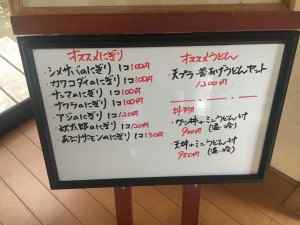 オススメにぎり
・シメサバのにぎり 1コ100円
カワコダイのにぎり 1コ100円
のにぎり 1コ100円
サワラのにぎり 1コ100円
・アジのにぎり 1コ120円
のにぎり 1コ120円
あぶりサーモンのにぎり 1コ130円
オススメうどん
天プラ
うどんセット
1200円
ミニうどん付
900円 (温・冷)
天丼 ミニうどん付
950円 (温・冷)